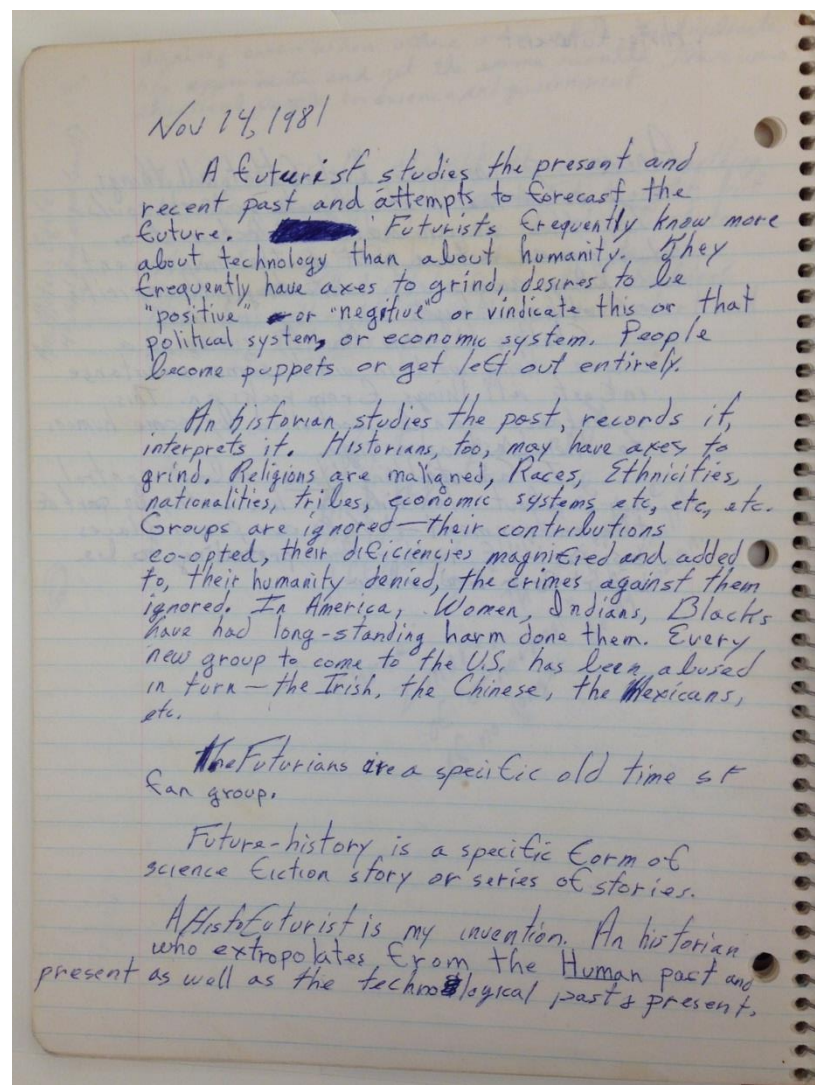 Nov 14, 1981
A futurist studies the present and
recent past and attempts to forecast the
future. Futurists frequently know more
about technology than about humanity. They
frequently have axes to grind, desires to be
"positive" or "negitive" or vindicate this or that
political system, or economic system. People
become puppets or get left out entirely.
An historian studies the past, records it,
interprets it. Historians, too, may have axes to
grind. Religions are maligned, Races, Ethnicities,
nationalities, tribes, economic systems etc, etc, etc.
Groups are ignored—their contributions
co-opted, their dificiencies magnified and added
to, their humanity denied, the crimes against them
ignored. In America, Women, Indians, Blacks
have had long-standing harm done them. Every
new group to come to the U.S. has been abused
in turn—the Irish, the Chinese, the Mexicans,
etc.
The Futurians are a specific old time SF
fan group.
Future-history is a specific form of
science fiction story or series of stories.
A HistoFuturist is my invention. An historian
who extropolates from the Human past and
present as well as the technological past & present.